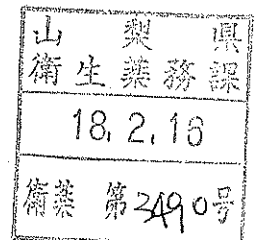 山梨県
衛生薬務課
18.2.16
衛薬 第3490号